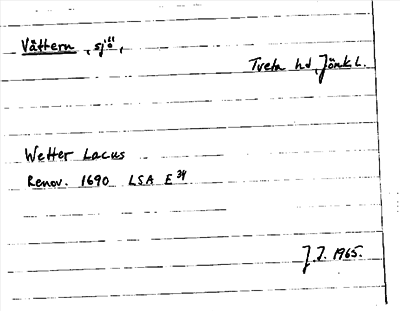 Vättern, sjö,
Tveta hd, Jönk l.
Wetter Lacus
Renov. 1690 LSA E 39
J.J. 1965.